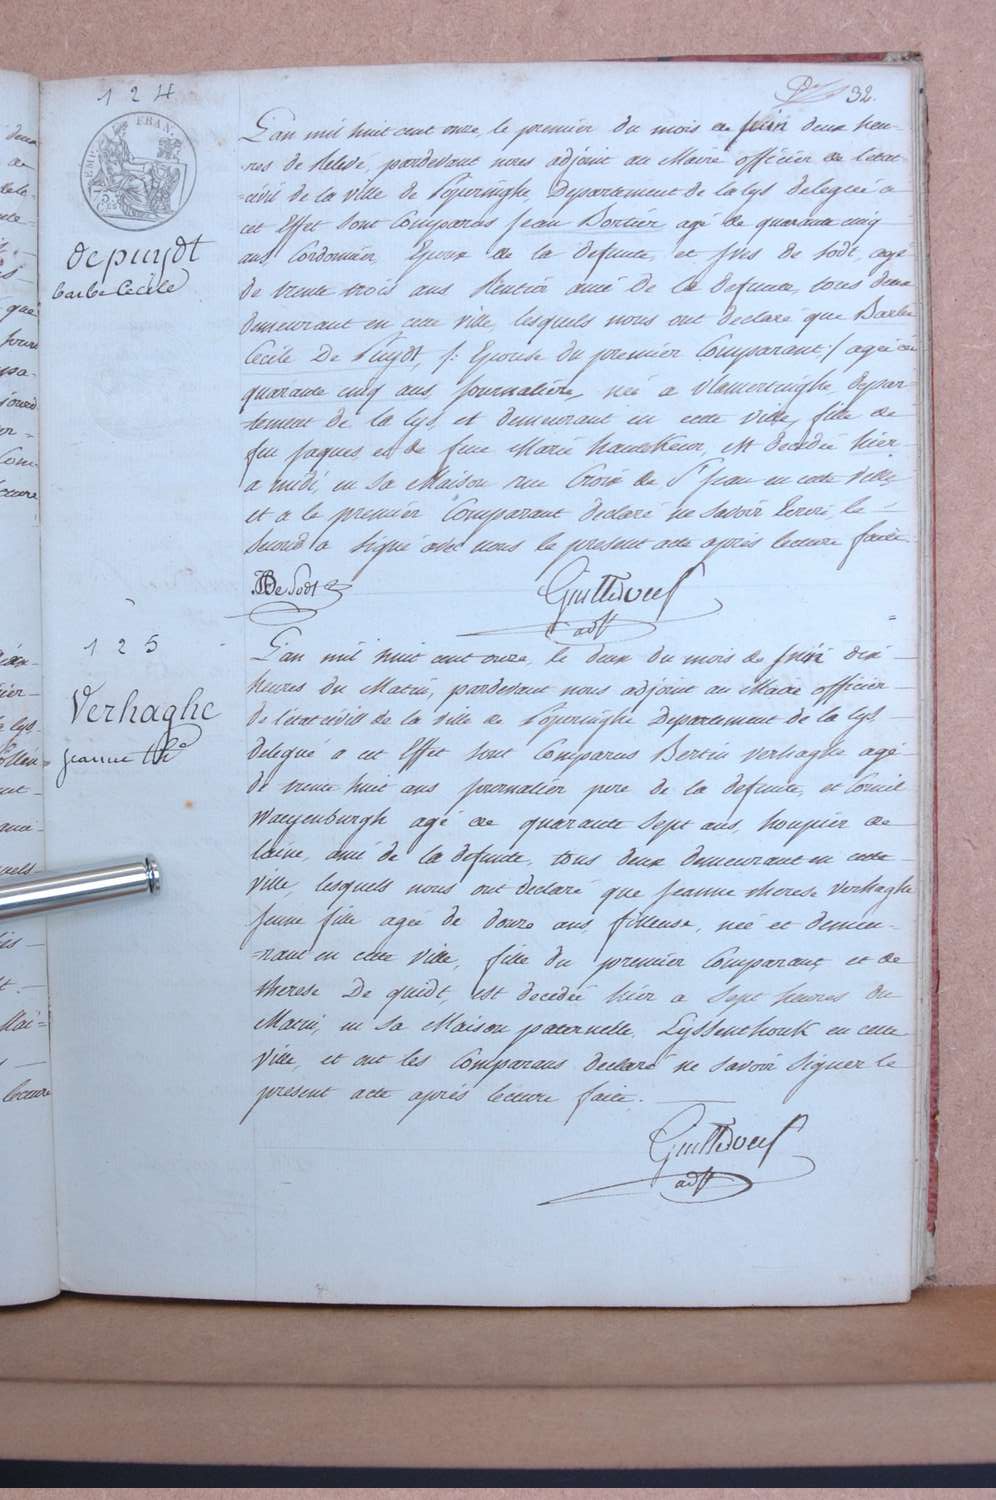 32.
124
EMP. FRAN.
75 CES
depuydt
barbe Cecile
L'an mil huit cent onze, le premier du mois de juin deux heu-
-res de Relevé, pardevant nous adjoint au Maire officier de l'etat
civil de la ville de Poperinghe, Departement de la lys delegué a
cet Effet sont Comparus jean Bortier agé de quarante cinq
ans Cordonnier, Epoux de la defunte, et de Sodt, agé
de trente trois ans Rentier amé de la defunte, tous deux
demeurant en cette ville, lesquels nous ont declaré que Barbe
Cecile De Puydt, /: Epouse du premier Comparant :/ agée de
quarante cinq ans, journalière, née a vlamertinghe, depar-
tement de la lys, et demeurant en cette ville, fille de
feu jaques, et de feue Marie, est decedée hier
a midi, en sa Maison rue Croix de St jean en cette ville,
et a le premier Comparant declaré ne savoir Ecrire, le
second a signé avec nous le present acte après lecture faite
De Sodt
adjt
125
Verhaghe
jeanne thse
L'an mil huit cent onze, le deux du mois de juin dix
heures du Matin, pardevant nous adjoint au Maire officier
de l'etat civil de la ville de Poperinghe Departement de la lys
delegué a cet Effet sont Comparus Bertin verhaghe agé
de trente huit ans journalier pere de la defunte, et Corneil
Waeyenburgh agé de quarante sept ans, houpier de
laine, amé de la defunte, tous deux demeurant en cette
ville, lesquels nous ont declaré que jeanne therese verhaghe
jeune fille agée de douze ans, filleuse, née et demeu-
-rant en cette ville, fille du premier Comparant et de
therese De quidt, est decedée hier a sept heures du
Matin, en sa Maison paternelle, Lyssenthouk en cette
ville, et ont les Comparans declaré ne savoir signer le
present acte après lecture faite.
adjt